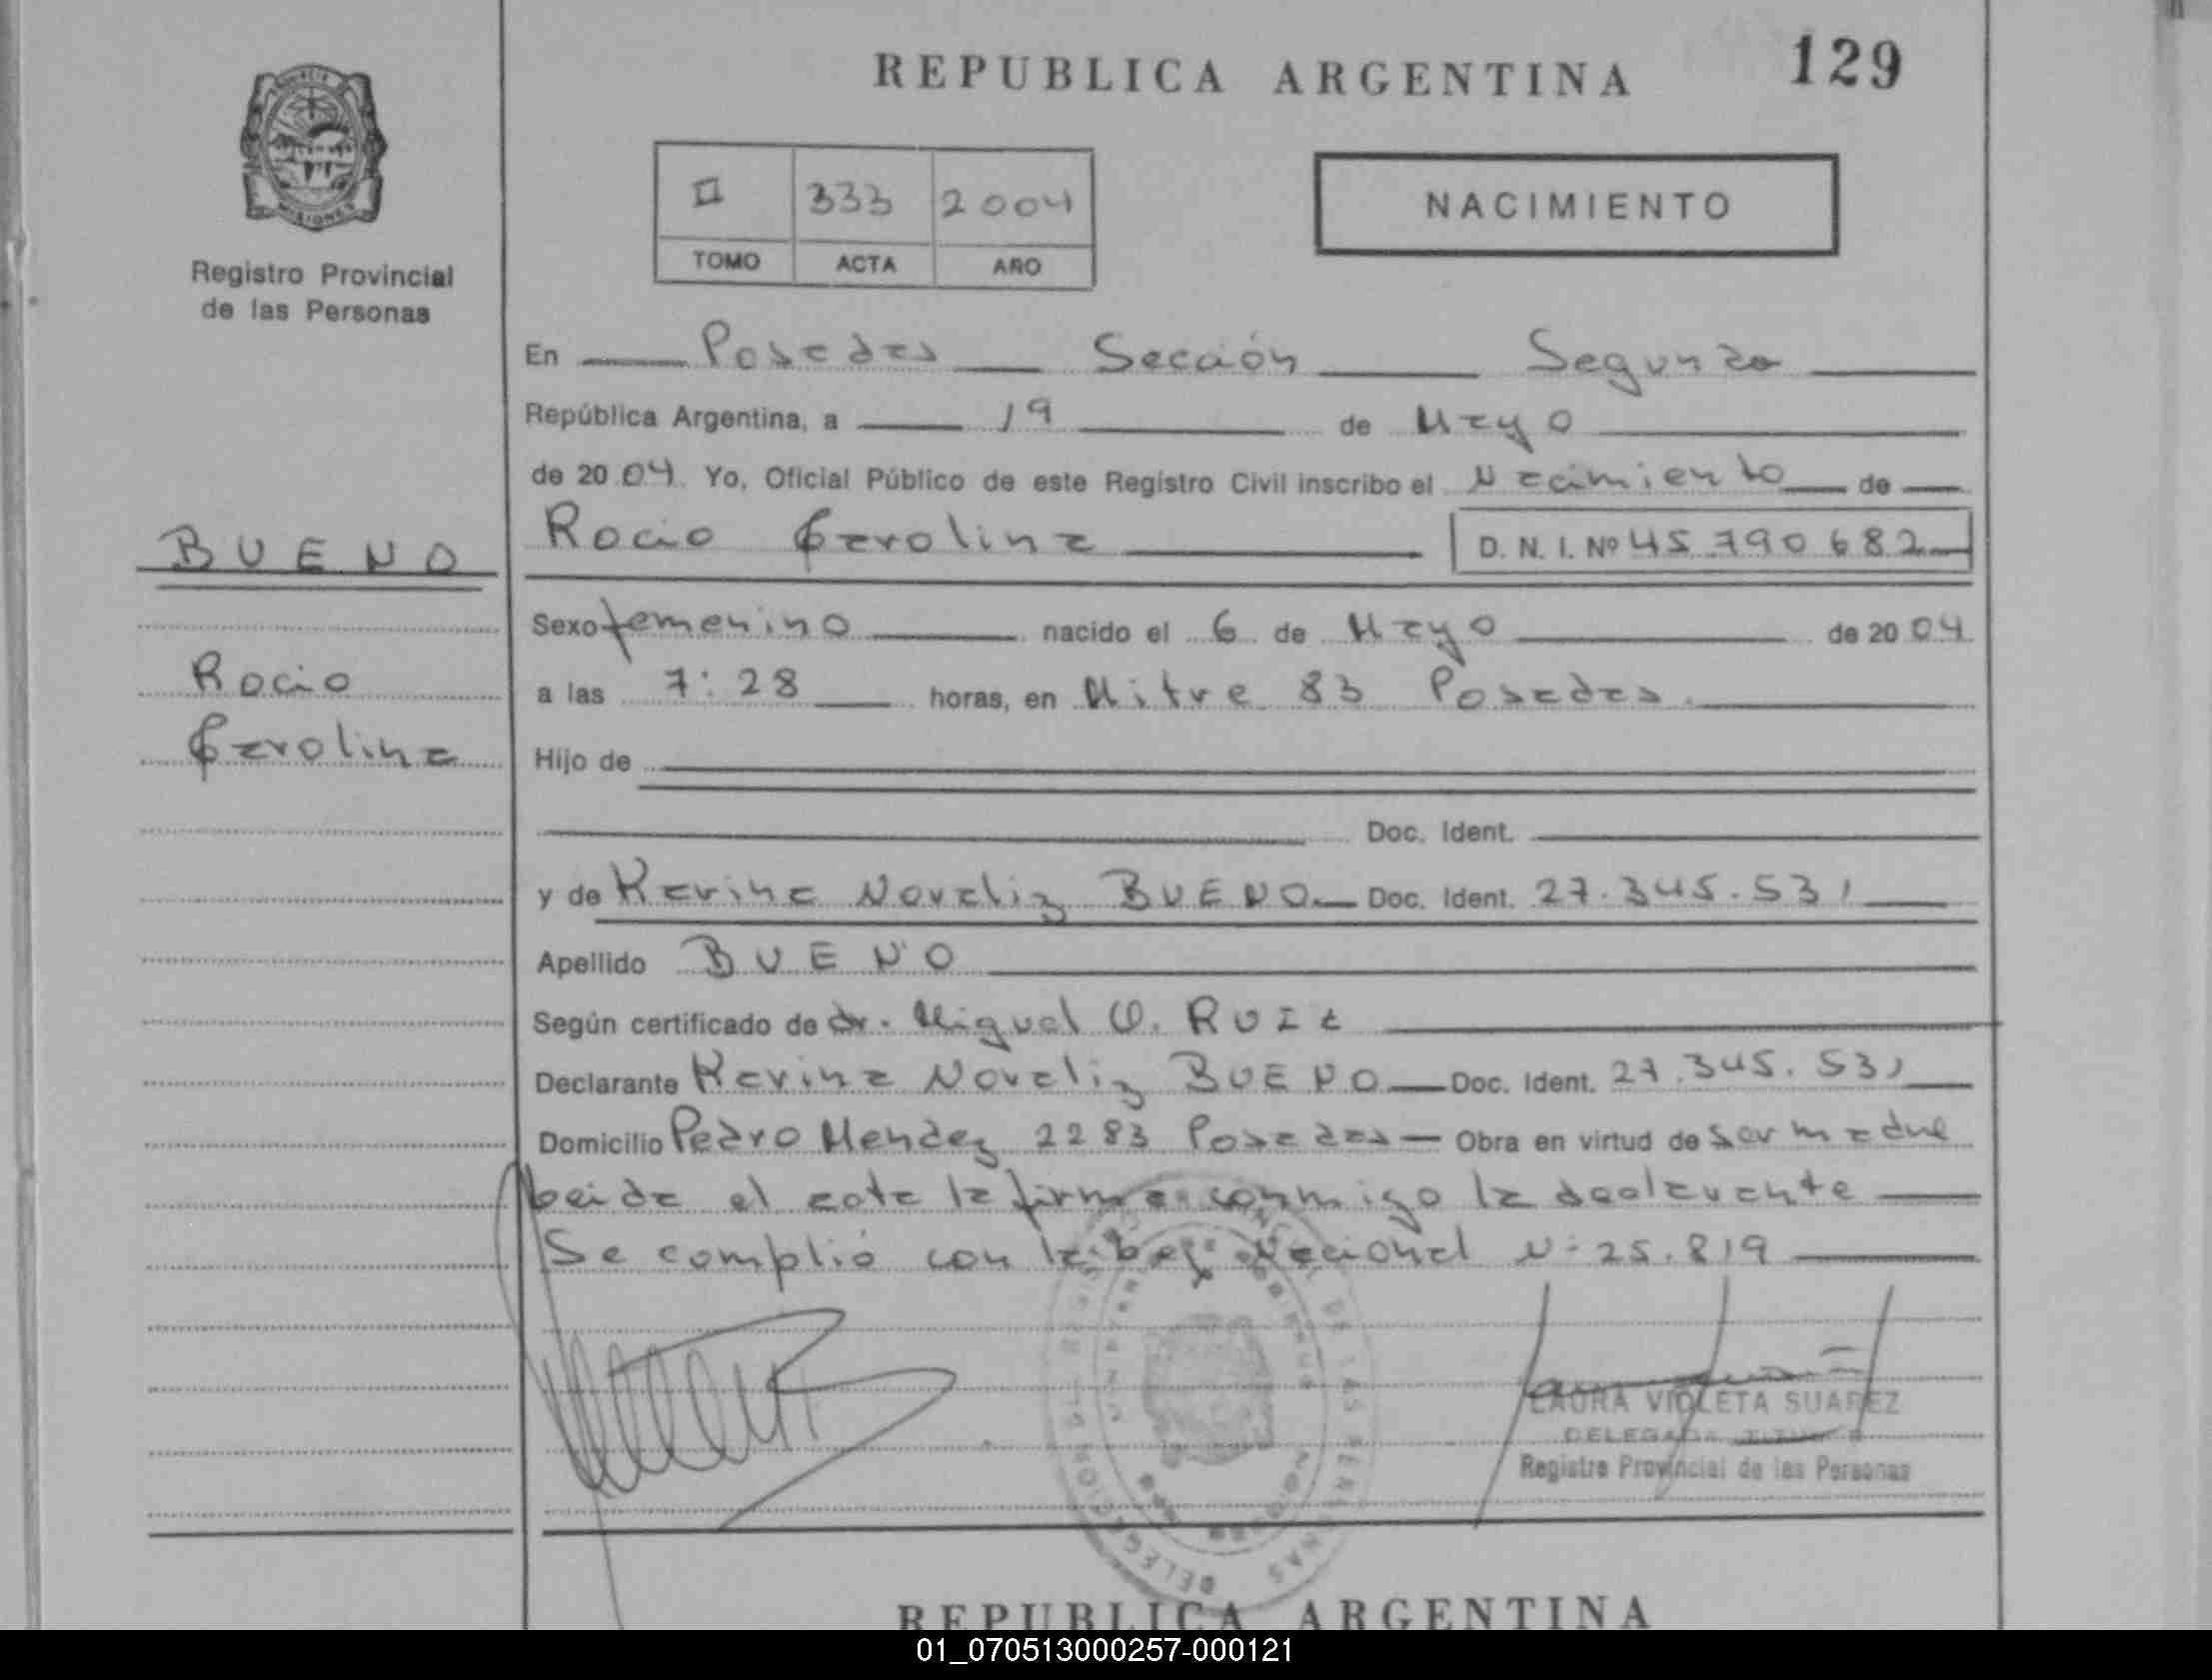 REPUBLICA ARGENTINA
129
MISIONES
Registro Provincial
de las Personas
II 333 2004
TOMO ACTA AÑO
NACIMIENTO
En Posadas Sección Segunda
República Argentina, a 19 de Mayo
de 2004 Yo, Oficial Público de este Registro Civil inscribo el Nacimiento de
BUENO
Rocio Carolina
Rocio Carolina D. N. I. Nº 45.790.682
Sexo femenino nacido el 6 de Mayo de 2004
a las 7:28 horas, en Mitre 83 Posadas.
Hijo de
Doc. Ident.
y de Karina Noraliz BUENO Doc. Ident. 27.345.531
Apellido BUENO
Según certificado de dr. Miguel O. RUIZ
Declarante Karina Noraliz BUENO Doc. Ident. 27.345.531
Domicilio Pedro Mendez 2283 Posadas Obra en virtud de ser madre
Leida el acta la firma conmigo la declarante
Se complió con la Ley Nacional Nº 25.819
LAURA VIOLETA SUAREZ
DELEGADA
Registro Provincial de las Personas
REPUBLICA ARGENTINA
01_070513000257-000121